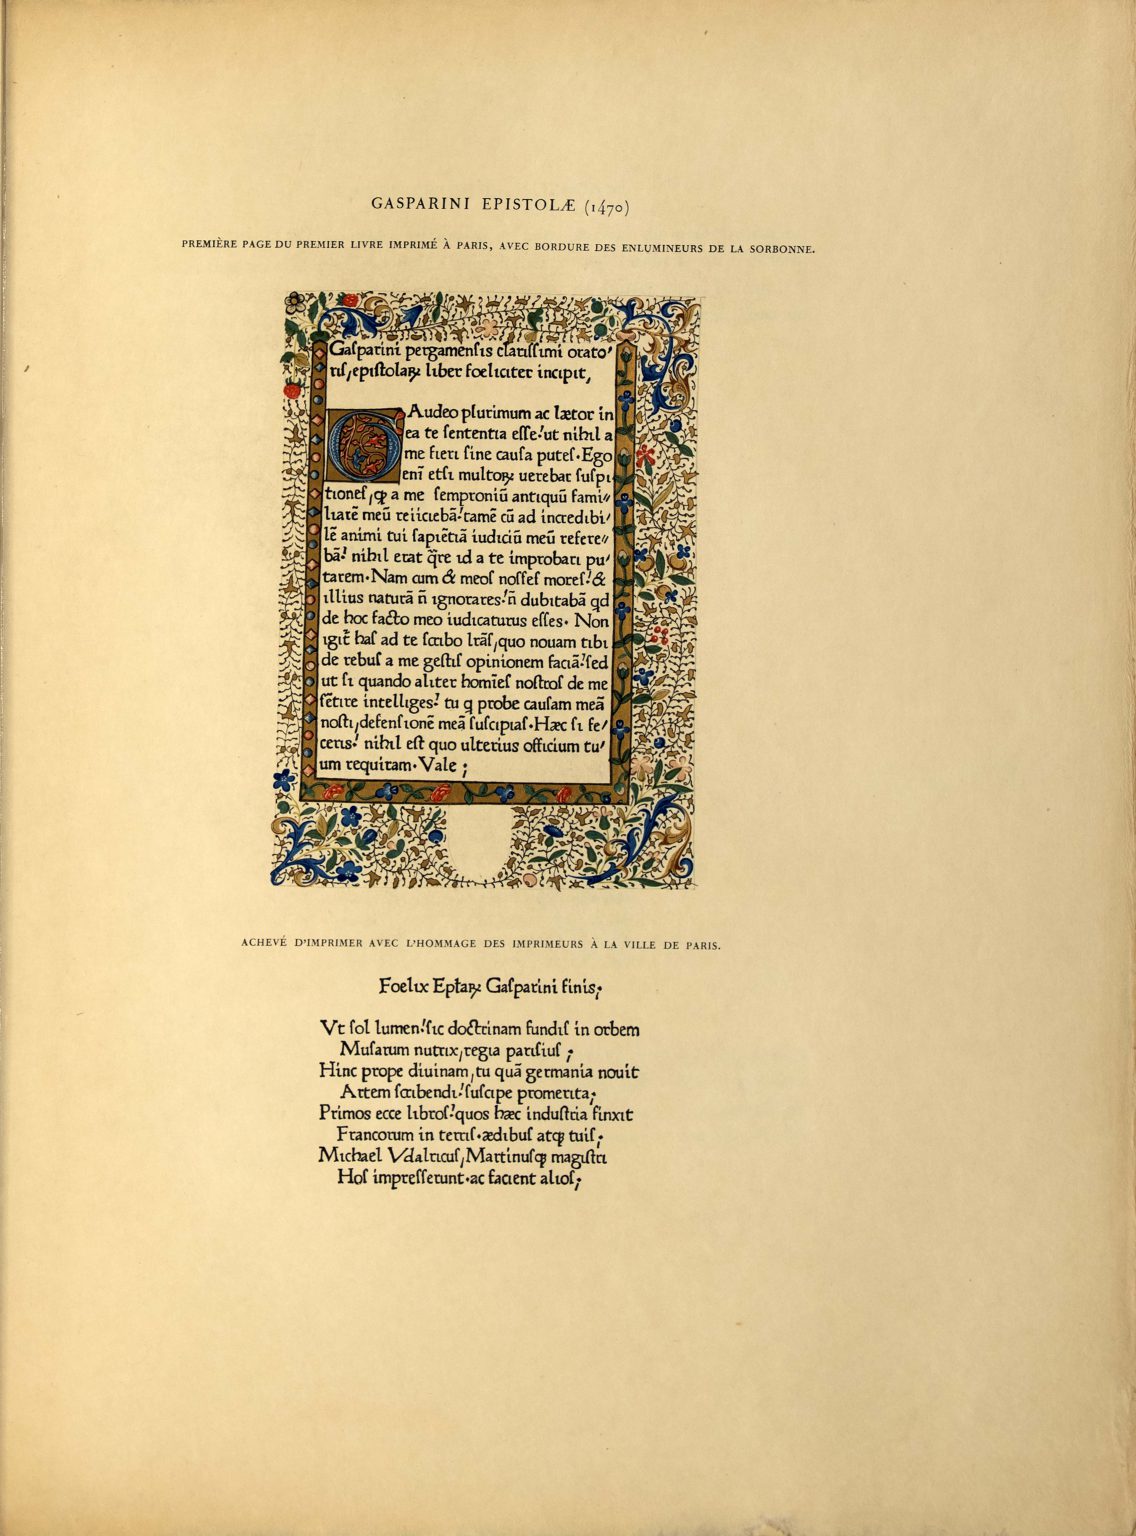 GASPARINI EPISTOLÆ (1470)
PREMIÈRE PAGE DU PREMIER LIVRE IMPRIMÉ À PARIS, AVEC BORDURE DES ENLUMINEURS DE LA SORBONNE.
Gaſparini pergamenſis clariſſimi orato/
riſ, epiſtolaꝝ liber foeliciter incipit,
GAudeo plurimum ac lætor in
ea te ſententia eſſe.' ut nihil a
me fieri ſine cauſa puteſ. Ego
enī etſi multoꝝ uerebar ſuſpi
tioneſ, ꝙ a me ſemproniū antiquū fami//
liarē meū reiiciebā.' tamē cū ad incredibi/
lē animi tui ſapiētiā iudiciū meū refere//
bā.' nihil erat q̄re id a te improbari pu/
tarem. Nam cum & meoſ noſſeſ moreſ.' &
illius naturā n̄ ignorares.' n̄ dubitabā qd
de hoc facto meo iudicaturus eſſes. Non
igit̄ haſ ad te ſcribo lr̄aſ, quo nouam tibi
de rebuſ a me geſtiſ opinionem faciā.' ſed
ut ſi quando aliter homīeſ noſtroſ de me
ſētire intelliges.' tu q probe cauſam meā
noſti, defenſionē meā ſuſcipiaſ. Hæc ſi fe/
ceris.' nihil eſt quo ulterius officium tu/
um requiram. Vale ;
ACHEVÉ D'IMPRIMER AVEC L'HOMMAGE DES IMPRIMEURS À LA VILLE DE PARIS.
Foelix Epłaꝝ Gaſparini finis;
Vt ſol lumen.' ſic doctrinam fundiſ in orbem
Muſarum nutrix, regia pariſiuſ ;
Hinc prope diuinam, tu quā germania nouit
Artem ſcribendi.' ſuſcipe promerita;
Primos ecce libroſ.' quos hæc induſtria finxit
Francorum in terriſ. ædibuſ atqꝫ tuiſ;
Michael Vdalricuſ, Martinuſqꝫ magiſtri
Hoſ impreſſerunt. ac facient alioſ;